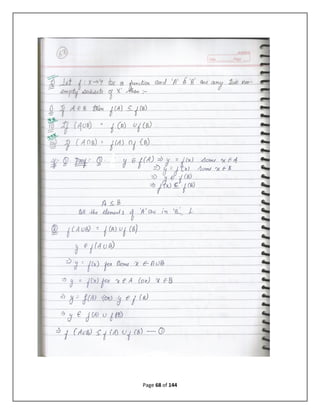 68
Let f : X→Y be a function and 'A' & 'B' are any two non-
empty subsets of X then :-
If A ⊆ B then f(A) ⊆ f(B)
If f(A∪B) = f(A) ∪ f(B)
f(A∩B) = f(A) ∩ f(B)
y ∈ f(A) ⇒ y = f(x) some x ∈ A
⇒ y = f(x) some x ∈ B
⇒ y ∈ f(B)
⇒ f(A) ⊆ f(B)
A ⊆ B
all the elements of 'A' are in 'B'
f(A∪B) = f(A) ∪ f(B)
y ∈ f(A∪B)
⇒ y = f(x) for some x ∈ A∪B
⇒ y = f(x) for x ∈ A (or) x ∈ B
⇒ y = f(A) (or) y ∈ f(B)
⇒ y ∈ f(A) ∪ f(B)
⇒ f(A∪B) ⊆ f(A) ∪ f(B) — ①
Page 68 of 144